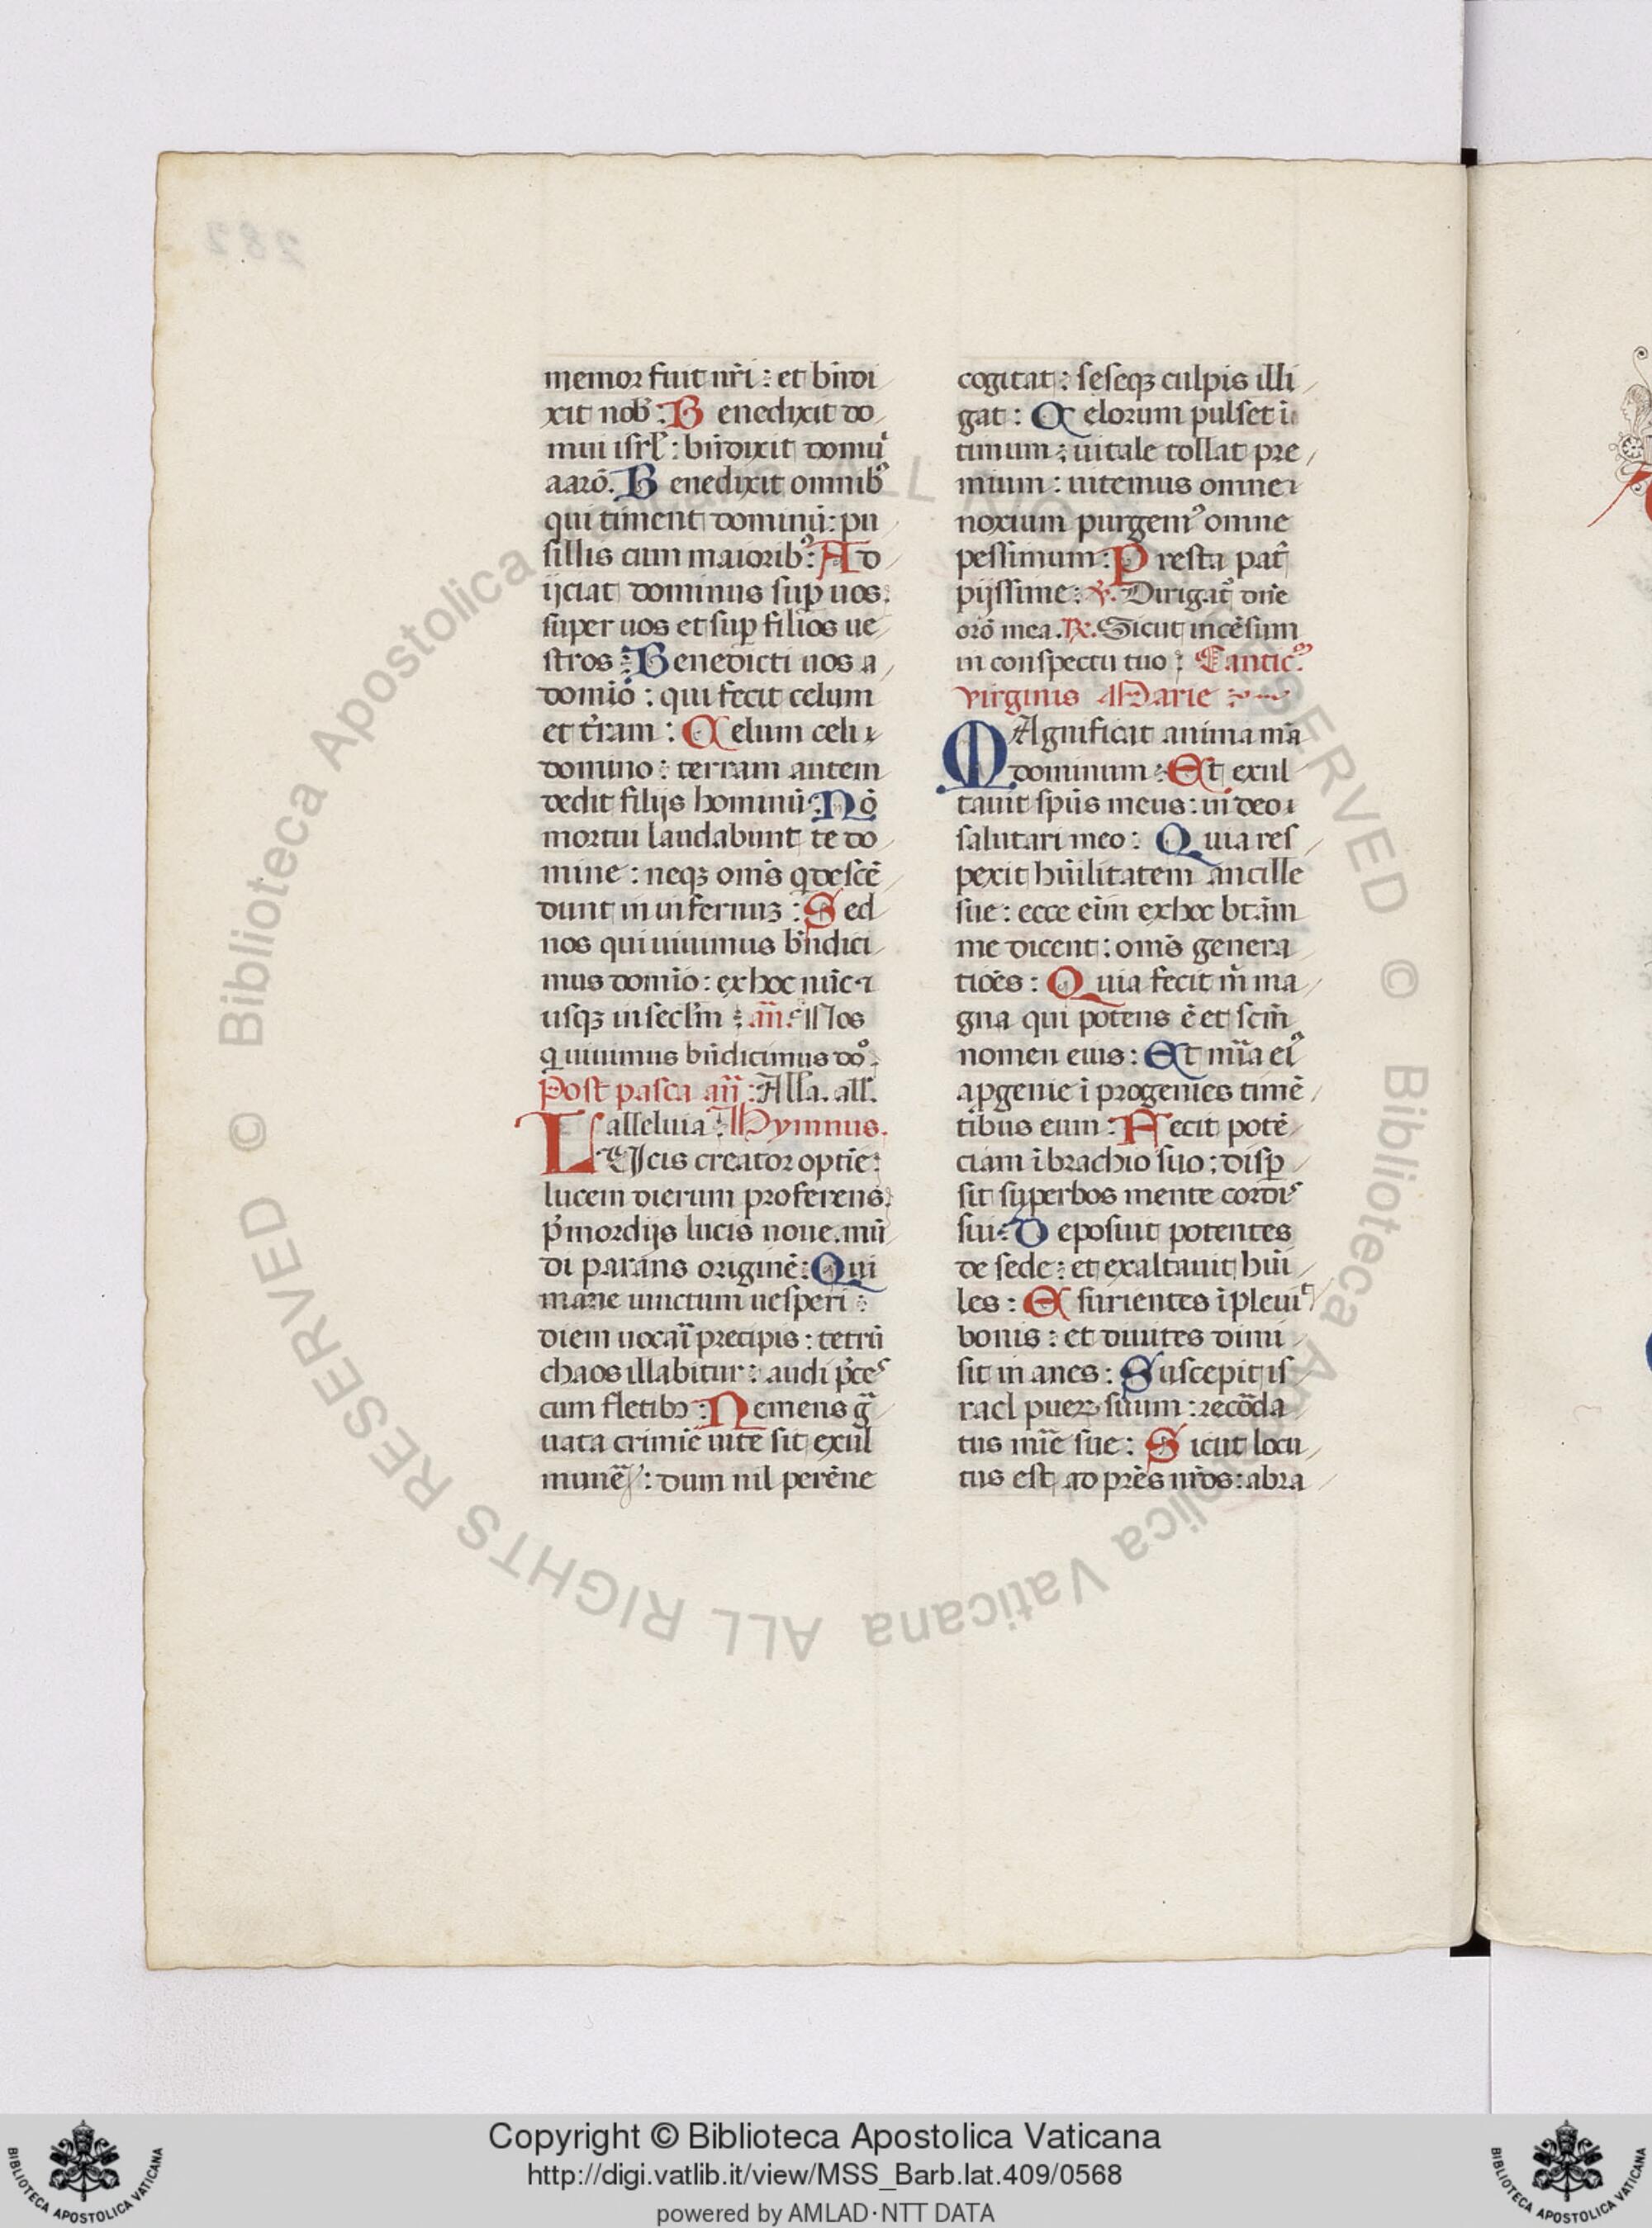 282
memor fuit nr̄i : et bn̄di
xit nob̾ : Benedixit do
mui isrl̄ : bn̄dixit domui
aarō. Benedixit omnib̾
qui timent dominū : pu
sillis cum maiorib̾ : Ad
ijciat dominus sup̱ uos.
super uos et sup̱ filios ue
stros : Benedicti uos a
domīo : qui fecit celum
et t̄ram : Celum celi
domino : terram autem
dedit filijs hominū : Nō
mortui laudabunt te do
mine : neqꝫ om̄s q̱ descē
dunt in infernuꝫ : Sed
nos qui uiuimus bn̄dici
mus domīo : ex hoc nūc ⁊
usqꝫ in secl̄m : an̄. Nos
q̱ uiuimus bn̄dicimus dōo.
Post pasca an̄ : All̄a. all̄.
alleluia : Hymnus.
LUcis creator optīe :
lucem dierum proferens.
p̄mordijs lucis noue. mū
di parans originē : Qui
mane uinctum uesperi :
diem uocari precipis : tetrū
chaos illabitur : audi p̄ces
cum fletibꝫ : Ne mens g̃
uata crimīe uite sit exul
mun̄e : dum nil perēne
cogitat : seseqꝫ culpis illi
gat : Celorum pulset ī
timum : uitale tollat pre
mium : uitemus omne
noxium purgem̾ omne
pessimum : Presta pat̄
pijssime : ℣. Dirigat̾ dn̄e
orō mea. ℟. Sicut incēsum
in conspectu tuo : Cantic̾
virginis Marie :
MAgnificat anima m̄a
dominum : Et exul
tauit sp̄us meus : in deo
salutari meo : Quia res
pexit hūilitatem ancille
sue : ecce eīm ex hoc bt̄am
me dicent : om̄s genera
tiōes : Quia fecit m̄ ma
gna qui potens ē et scm̄
nomen eius : Et mīa ei̾
a p̱genie ī progenies timē
tibus eum : Fecit potē
ciam ī brachio suo : disp̱
sit superbos mente cordis
sui : Deposuit potentes
de sede : et exaltauit hūi
les : Esurientes īpleuit
bonis : et diuites dimi
sit inanes : Suscepit is
rael pueꝝ suum : recōda
tus mīe sue : Sicut locu
tus est ad pr̄es nr̄os : abra
© Biblioteca Apostolica Vaticana ALL RIGHTS RESERVED © Biblioteca Apostolica Vaticana ALL RIGHTS RESERVED
Copyright © Biblioteca Apostolica Vaticana
http://digi.vatlib.it/view/MSS_Barb.lat.409/0568
powered by AMLAD·NTT DATA
BIBLIOTECA APOSTOLICA VATICANA
BIBLIOTECA APOSTOLICA VATICANA